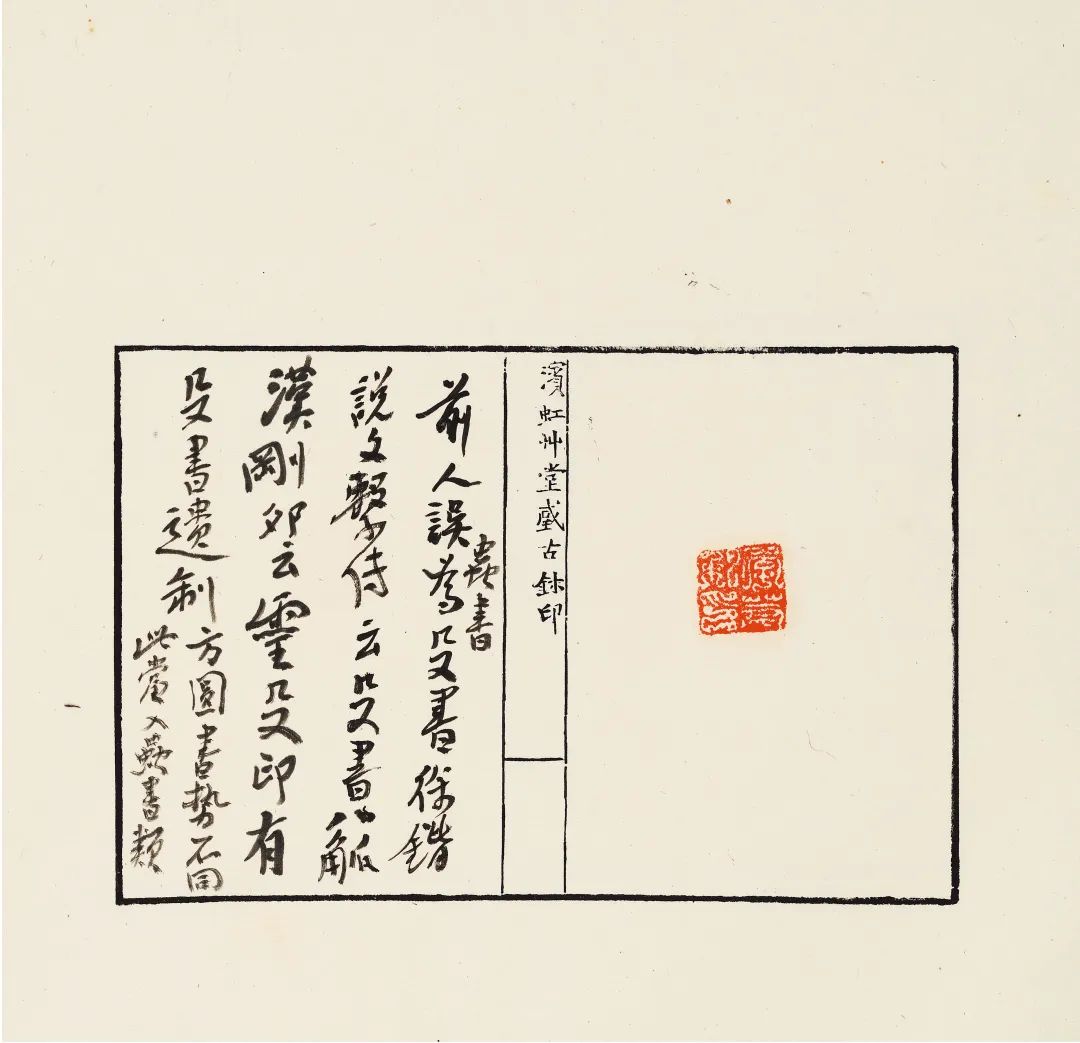 濱虹艸堂藏古鉥印
前人誤為殳書徐鍇
蟲書
說文繫傳云殳書八觚
漢剛卯云靈殳印有
殳書遺制方圓書勢不同
此當入蟲書類